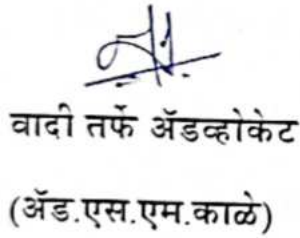 वादी तर्फे ॲडव्होकेट
(ॲड.एस.एम.काळे)